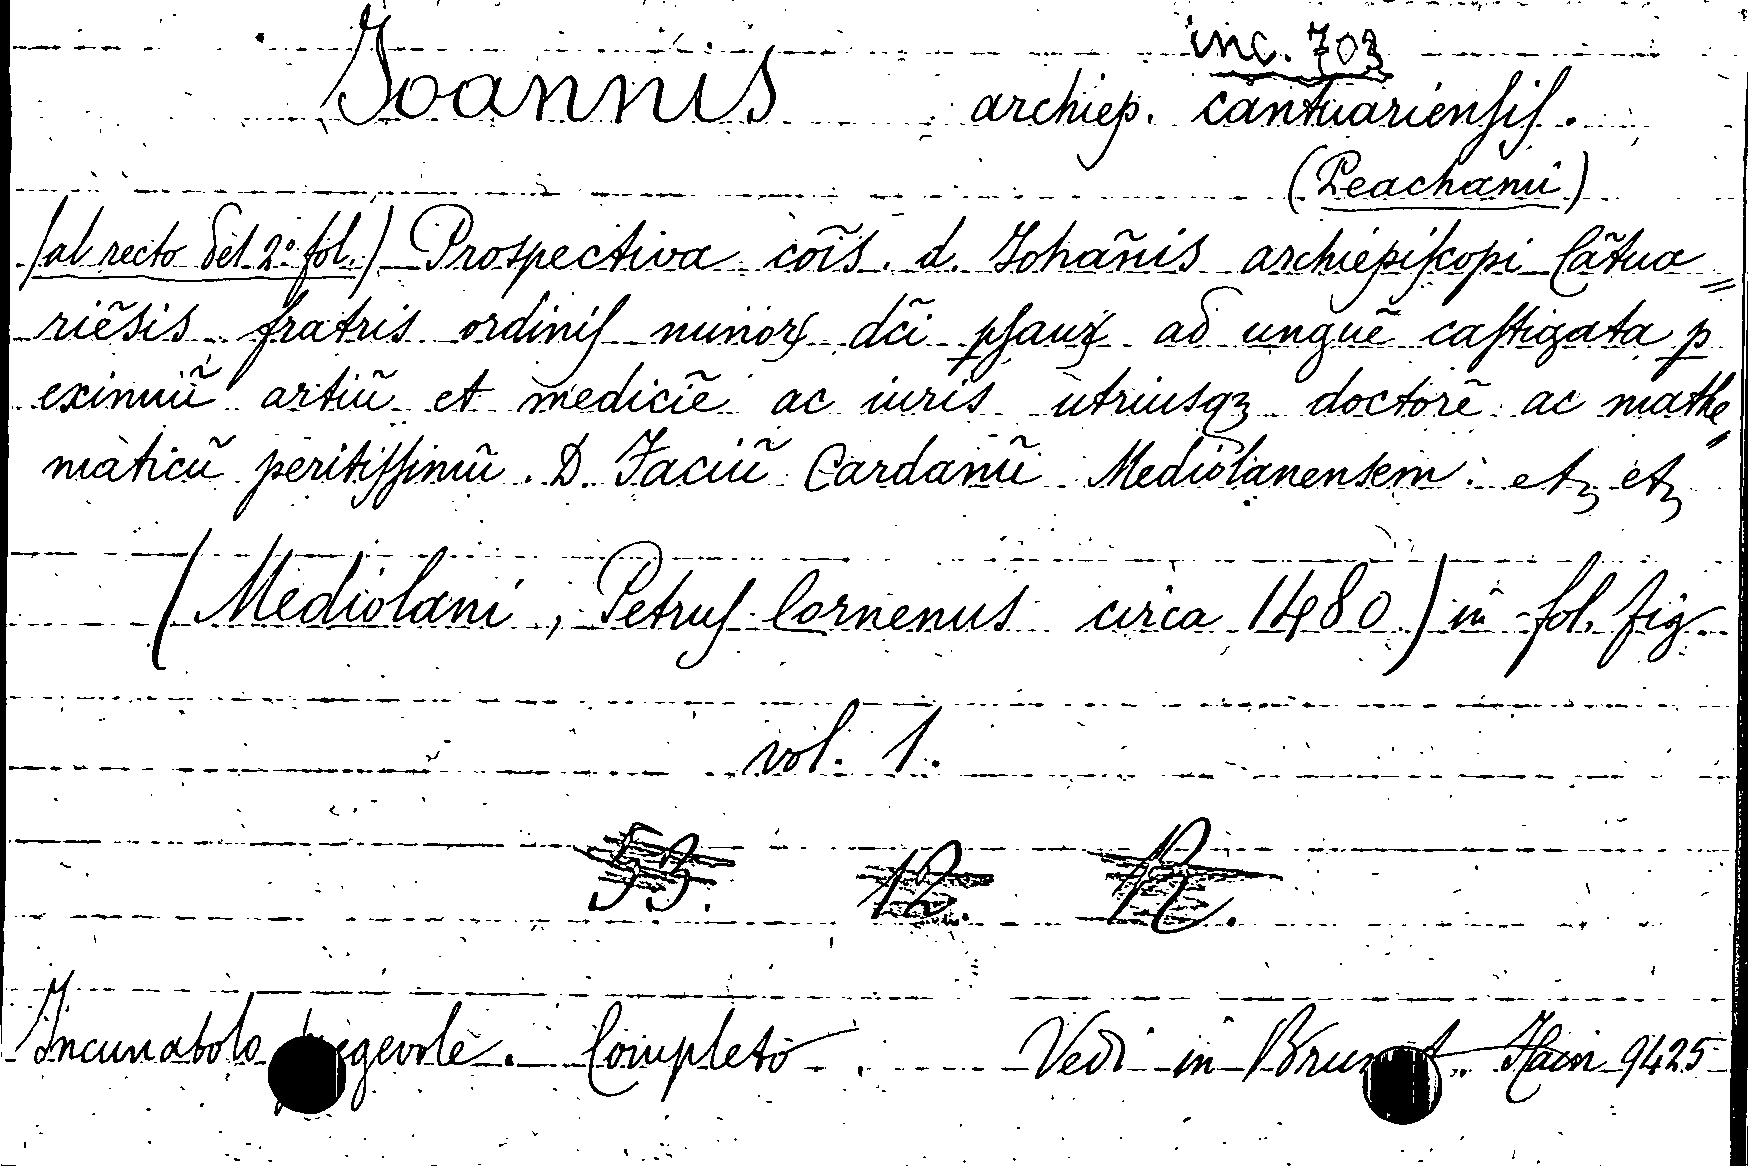 inc. 703
Joannis archiep. cantuariensis.
(Peachami)
(al recto del 2º fol.) Prospectiva cõis. d. Johãnis archiepiscopi Cãtua=
riẽsis fratris ordinis minorꝝ dc̃i psauꝝ ad unguẽ castigata p
eximiũ artiũ et medicĩe ac iuris utriusqꝫ doctorẽ ac mathe„
maticũ peritissimũ. D. Faciũ Cardanũ Mediolanensem: etꝫ etꝫ
(Mediolani, Petrus Cornenus circa 1480) in-fol. fig.
vol. 1.
53. 12. 12.
Incunabolo Completo. Vedi in Hain 9425